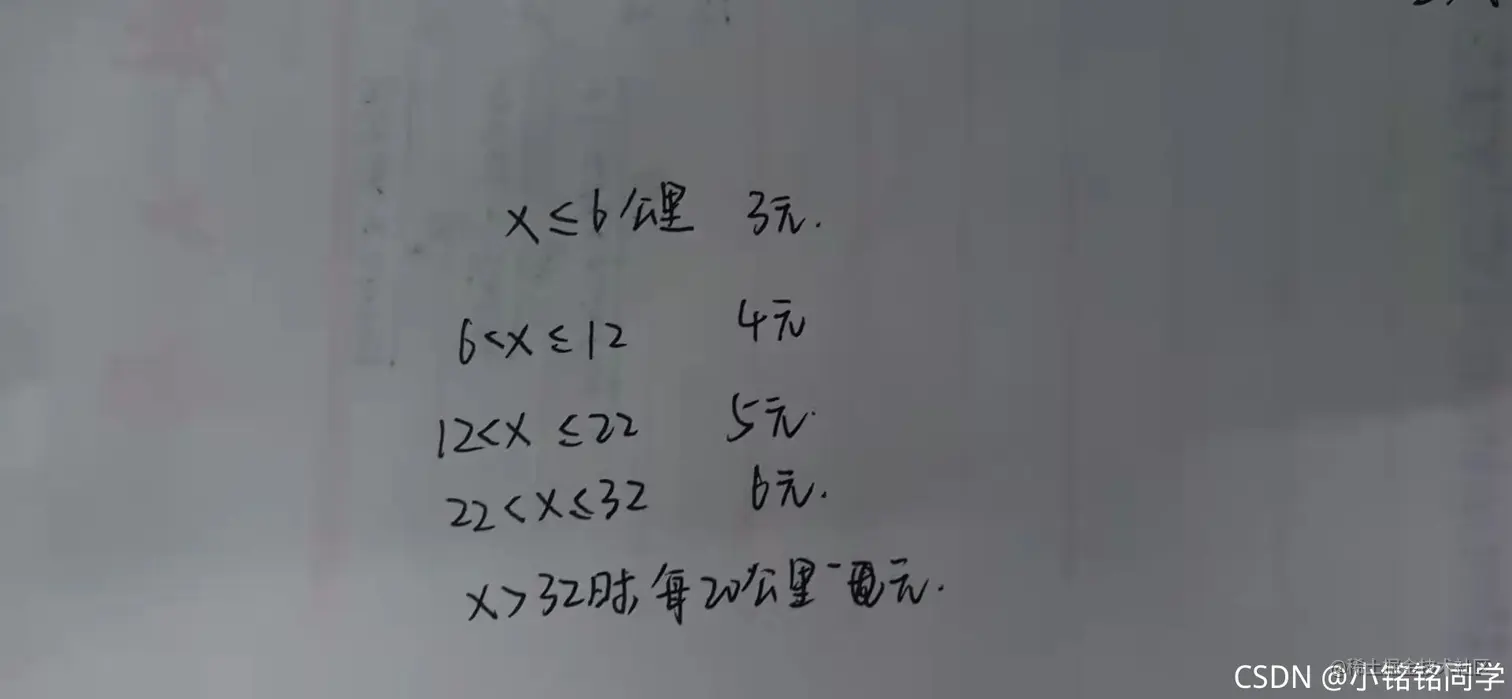 x≤6公里 3元.
6<x≤12 4元
12<x≤22 5元.
22<x≤32 6元.
x>32时,每20公里一元.
@稀土掘金技术社区
CSDN @小铭铭同学